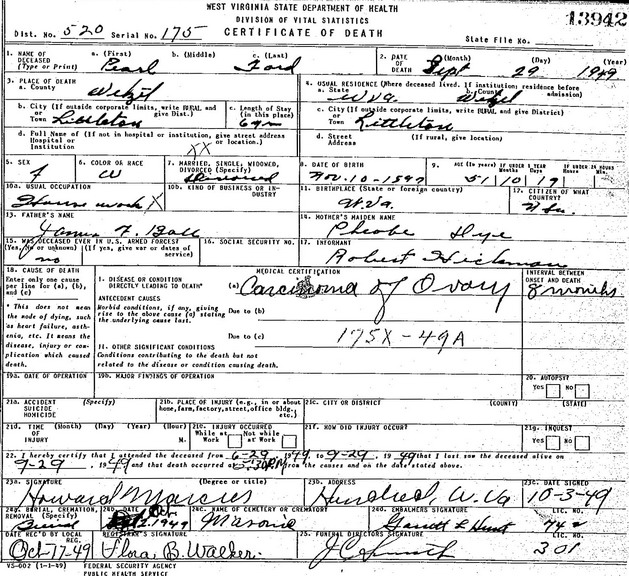 WEST VIRGINIA STATE DEPARTMENT OF HEALTH
DIVISION OF VITAL STATISTICS
13942
Dist. No. 520 Serial No. 175 CERTIFICATE OF DEATH State File No.
1. NAME OF DECEASED (Type or Print) a. (First) Pearl b. (Middle) c. (Last) Ford
2. DATE OF DEATH (Month) Sept (Day) 29 (Year) 1949
3. PLACE OF DEATH a. County Wetzel
4. USUAL RESIDENCE (Where deceased lived. If institution; residence before admission) a. State W Va b. County Wetzel
b. City (If outside corporate limits, write RURAL and give Dist.) or Town Littleton
c. Length of Stay (in this place)
c. City (If outside corporate limits, write RURAL, and give District) or Town Littleton
d. Full Name of (If not in hospital or institution, give street address Hospital or location) Institution XX
d. Street Address (If rural, give location)
5. SEX F
6. COLOR OR RACE W
7. MARRIED, SINGLE, WIDOWED, DIVORCED (Specify) Divorced
8. DATE OF BIRTH Nov. 10-1897
9. AGE (In years) 51 IF UNDER 1 YEAR Months 10 Days 19 IF UNDER 24 HOURS Hours Min
10a. USUAL OCCUPATION House work X
10b. KIND OF BUSINESS OR INDUSTRY
11. BIRTHPLACE (State or foreign country) W.Va.
12. CITIZEN OF WHAT COUNTRY?
13. FATHER'S NAME James F. Ball
14. MOTHER'S MAIDEN NAME Phoebe
15. WAS DECEASED EVER IN U.S. ARMED FORCES? (Yes, No or unknown) (If yes, give war or dates of service) no
16. SOCIAL SECURITY NO.
17. INFORMANT Robert Hickman
18. CAUSE OF DEATH
Enter only one cause per line for (a), (b), and (c)
* This does not mean the mode of dying, such as heart failure, asthenia, etc. It means the disease, injury or complication which caused death.
MEDICAL CERTIFICATION
INTERVAL BETWEEN ONSET AND DEATH
I. DISEASE OR CONDITION DIRECTLY LEADING TO DEATH* (a) Carcinoma of Ovary 8 months
ANTECEDENT CAUSES
Morbid conditions, if any, giving rise to the above cause (a) stating the underlying cause last.
Due to (b)
Due to (c)
175X-49A
II. OTHER SIGNIFICANT CONDITIONS
Conditions contributing to the death but not related to the disease or condition causing death.
19a. DATE OF OPERATION
19b. MAJOR FINDINGS OF OPERATION
20. AUTOPSY? Yes No
21a. ACCIDENT SUICIDE HOMICIDE (Specify)
21b. PLACE OF INJURY (e.g., in or about home, farm, factory, street, office bldg. etc.)
21c. CITY OR DISTRICT (COUNTY) (STATE)
21d. TIME OF INJURY (Month) (Day) (Year) (Hour) M.
21e. INJURY OCCURRED While at Work Not while at Work
21f. HOW DID INJURY OCCUR?
21g. INQUEST Yes No
22. I hereby certify that I attended the deceased from 6-29 1949, to 9-29, 1949 that I last saw the deceased alive on
9-29, 1949 and that death occurred at 5:30 P.M. from the causes and on the date stated above.
23a. SIGNATURE (Degree or title) Howard
23b. ADDRESS Hundred, W. Va
23c. DATE SIGNED 10-3-49
24a. BURIAL, CREMATION, REMOVAL (Specify) Burial
24b. DATE Oct. 2, 1949
24c. NAME OF CEMETERY OR CREMATORY Masonic
24d. EMBALMERS SIGNATURE LIC. NO.
Garrett L Hunt 742
DATE REC'D BY LOCAL REG. Oct-17-49
REGISTRAR'S SIGNATURE Flora, B. Walker.
25. FUNERAL DIRECTORS SIGNATURE LIC. NO. 301
VS-002 (1-1-49) FEDERAL SECURITY AGENCY
PUBLIC HEALTH SERVICE